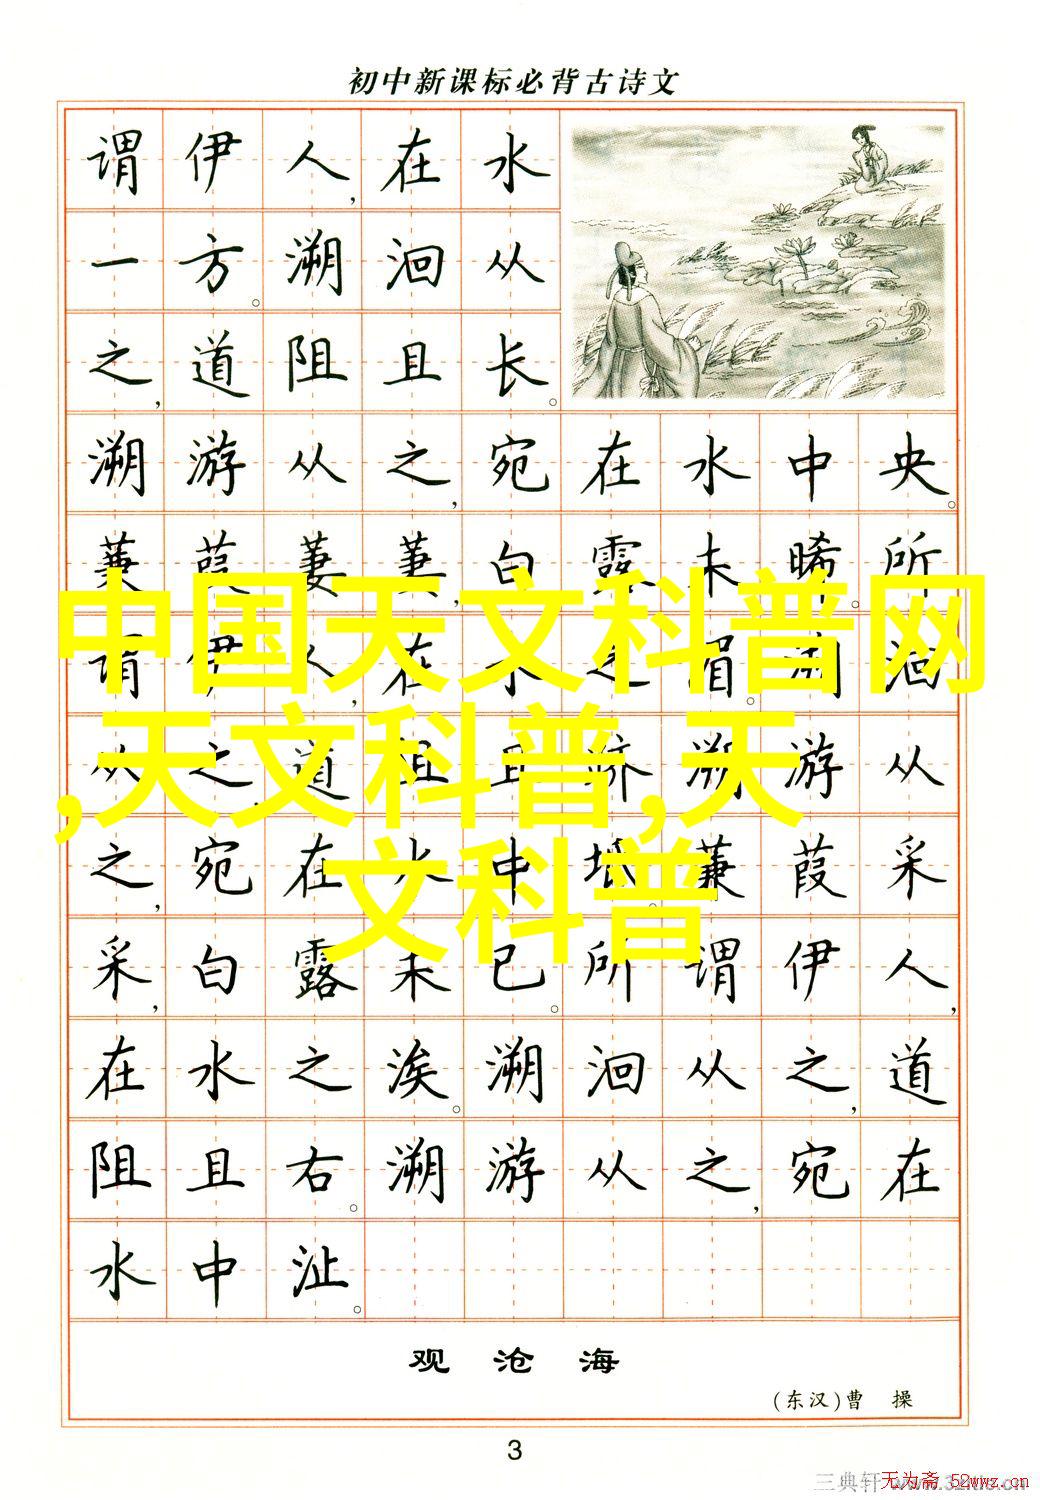 初中新课标必背古诗文
谓伊人,在水
一方。溯洄从
之,道阻且长。
溯游从之,宛在水中央。
蒹葭萋萋,白露未晞。所
谓伊人,在水之湄。溯洄
从之,道阻且跻。溯游从
之,宛在水中坻。蒹葭采
采,白露未已。所谓伊人,
在水之涘。溯洄从之,道
阻且右。溯游从之,宛在
水中沚。
中国天文科普网
,天文科普,天
文科普
观沧海
(东汉)曹操
3
三典轩
无为斋 52wwz.cn